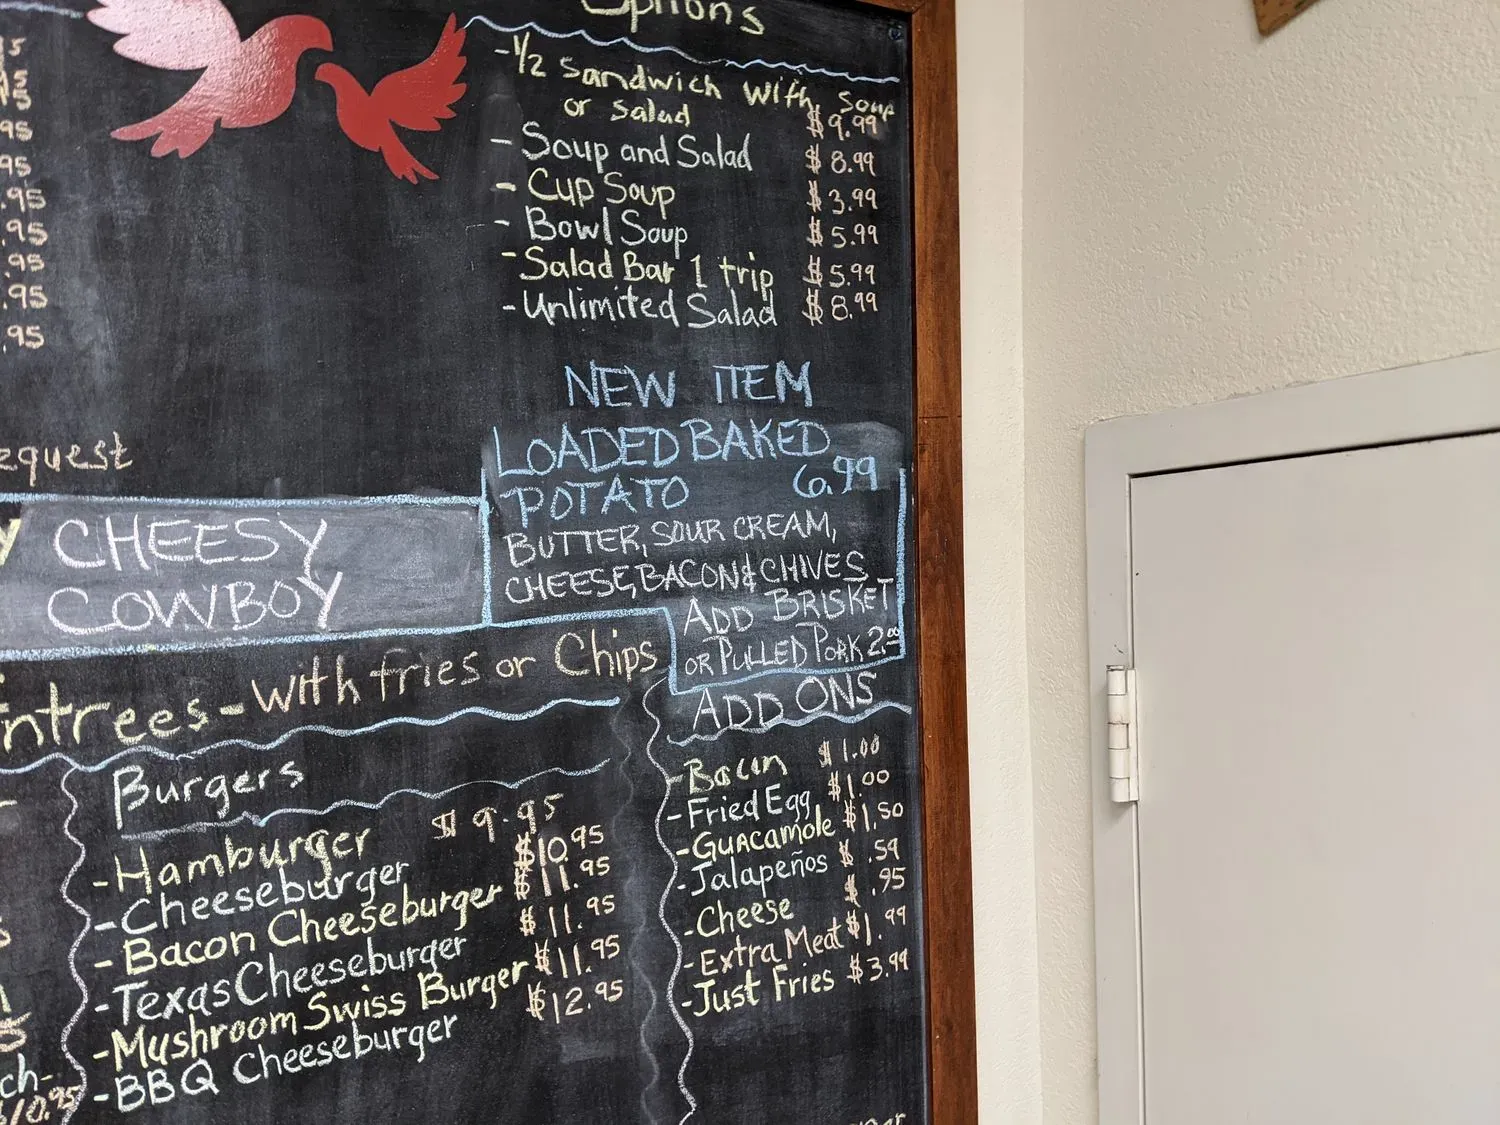 Options
-1/2 Sandwich with Soup
or salad $9.99
- Soup and Salad $8.99
- Cup Soup $3.99
- Bowl Soup $5.99
- Salad Bar 1 trip $5.99
- Unlimited Salad $8.99
.95
.95
.95
.95
.95
.95
.95
NEW ITEM
LOADED BAKED
POTATO 6.99
BUTTER, SOUR CREAM,
CHEESE, BACON & CHIVES
ADD BRISKET
OR PULLED PORK 2.00
CHEESY
COWBOY
with fries or Chips
Burgers
- Hamburger $9.95
- Cheeseburger $10.95
- Bacon Cheeseburger $11.95
- Texas Cheeseburger $11.95
- Mushroom Swiss Burger $11.95
- BBQ Cheeseburger $12.95
ADD ONS
- Bacon $1.00
- Fried Egg $1.00
- Guacamole $1.50
- Jalapeños $.59
- Cheese $.95
- Extra Meat $1.99
- Just Fries $3.99